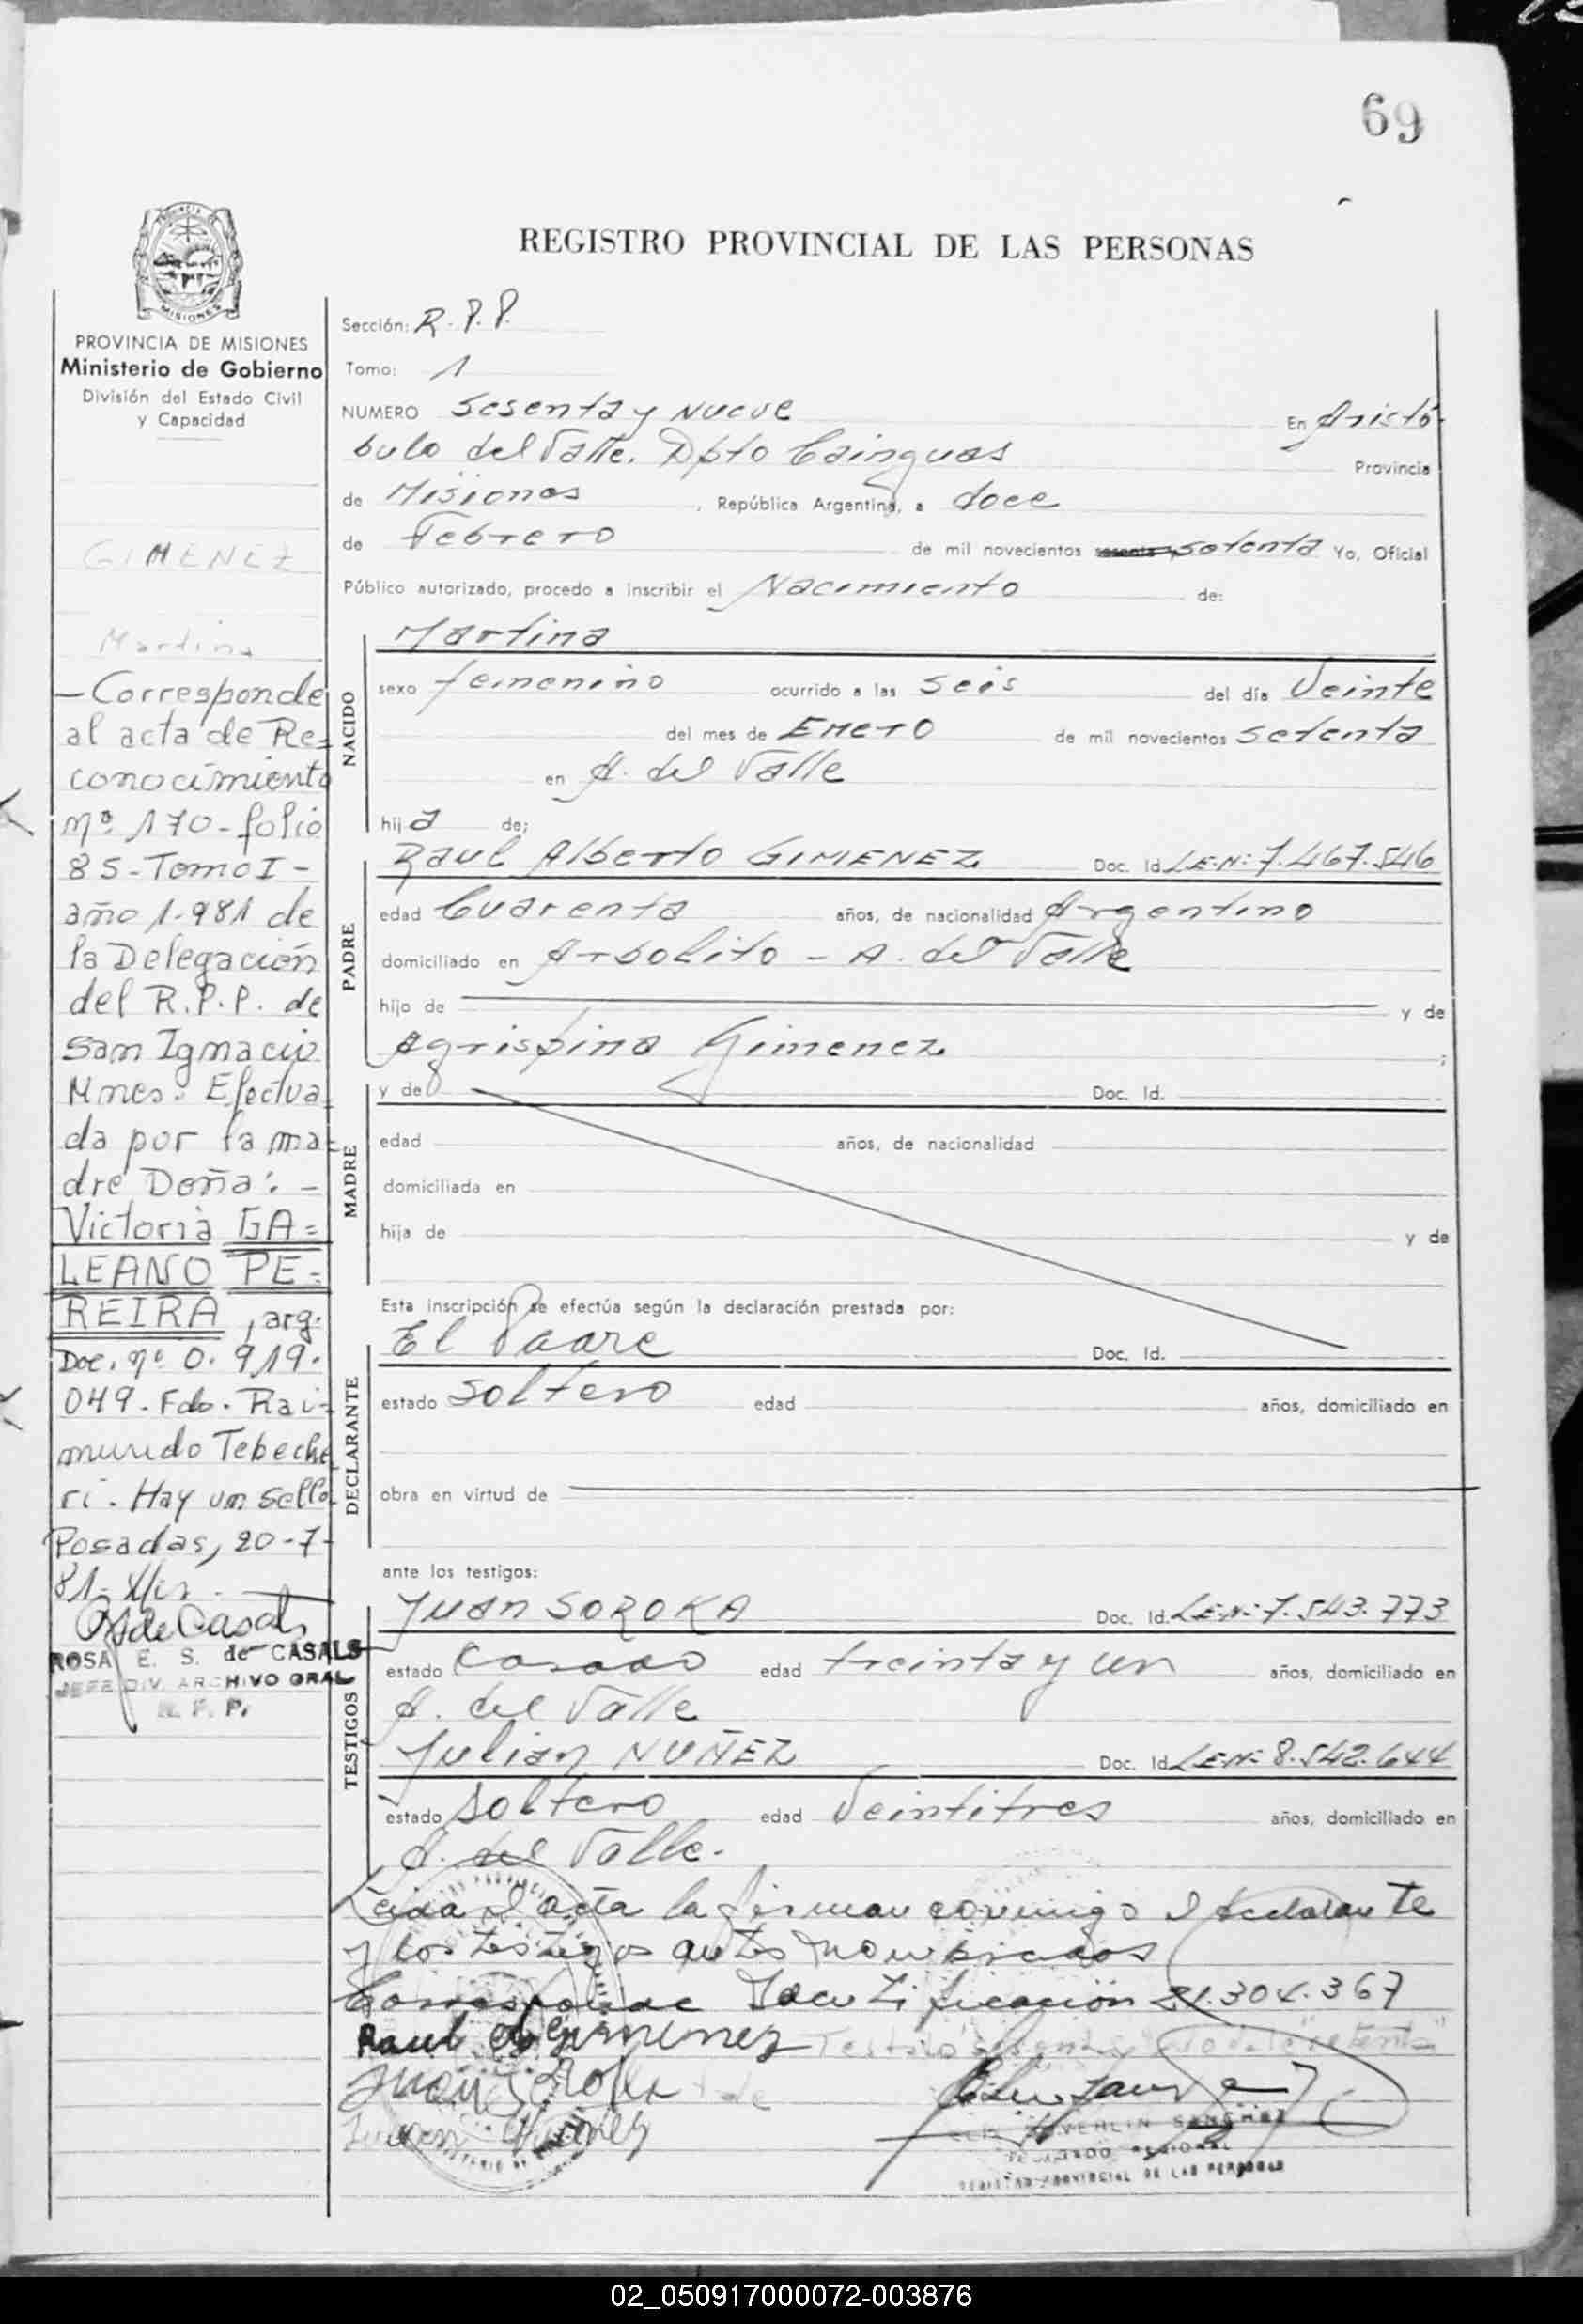 69
REGISTRO PROVINCIAL DE LAS PERSONAS
PROVINCIA DE MISIONES
Ministerio de Gobierno
División del Estado Civil
y Capacidad
GIMENEZ
Martina
— Corresponde
al acta de Re=
conocimiento
nº 170 - folio
85 - Tomo I -
año 1.981 de
la Delegación
del R.P.P. de
San Ignacio
Mnes. Efectua=
da por la ma=
dre Doña: -
Victoria GA=
LEANO PE=
REIRA, arg.
Doc. nº 0.919.
049. Fdo. Rai=
mundo Tebeche
ri. Hay un sello.
Posadas, 20-7-
81.
R S de Casals
ROSA E. S. de CASALS
JEFE DIV. ARCHIVO GRAL
R. P. P.
Sección: R. P. P.
Tomo: 1
NUMERO Sesenta y Nueve En Aristó-
bulo del Valle. Dpto Cainguas Provincia
de Misiones, República Argentina, a doce
de Febrero de mil novecientos sesenta setenta Yo, Oficial
Público autorizado, procedo a inscribir el Nacimiento de:
NACIDO
Martina
sexo femenino ocurrido a las Seis del día Veinte
del mes de Enero de mil novecientos Setenta
en A. del Valle
hija de:
PADRE
Raul Alberto GIMENEZ Doc. Id. L.E.Nº: 7.467.546
edad Cuarenta años, de nacionalidad Argentino
domiciliado en Arbolito - A. del Valle
hijo de y de
Agrispina Gimenez ;
MADRE
y de Doc. Id.
edad años, de nacionalidad
domiciliada en
hija de y de
Esta inscripción se efectúa según la declaración prestada por:
DECLARANTE
El Padre Doc. Id.
estado Soltero edad años, domiciliado en
obra en virtud de
ante los testigos:
TESTIGOS
Juan SOROKA Doc. Id. L.E.Nº: 7.543.773
estado Casado edad treinta y un años, domiciliado en
A. del Valle
Julian NUÑEZ Doc. Id. L.E.Nº: 8.542.644
estado Soltero edad Veintitres años, domiciliado en
A. del Valle.
Leida el acta la firman conmigo el declarante
y los testigos antes nombrados
Corresponde Identificación 21.304.367
Raul A Gimenez
SANCHEZ
DELEGADO REGIONAL
REGISTRO PROVINCIAL DE LAS PERSONAS
02_050917000072-003876